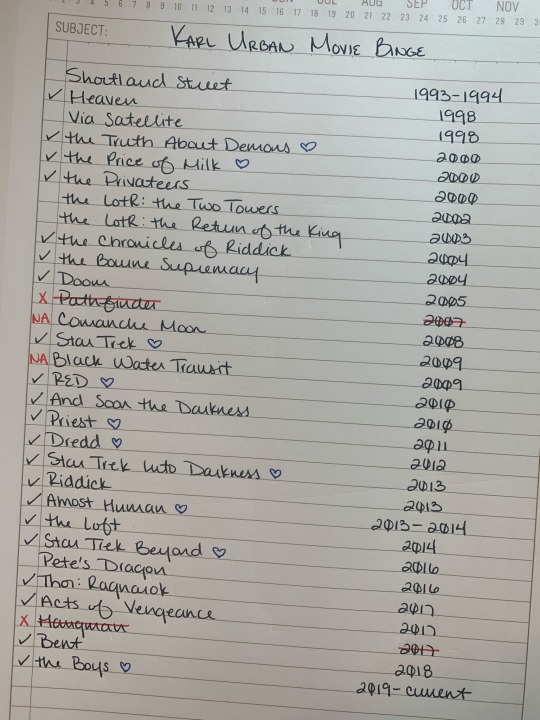 AUG SEP OCT NOV
5 6 7 8 9 10 11 12 13 14 15 16 17 18 19 20 21 22 23 24 25 26 27 28 29
SUBJECT: KARL URBAN MOVIE BINGE
Shortland Street 1993-1994
✓ Heaven 1998
Via Satellite 1998
✓ the Truth About Demons ♡ 2000
✓ the Price of Milk ♡ 2000
✓ the Privateers 2000
the LotR: the Two Towers 2002
the LotR: the Return of the King 2003
✓ the Chronicles of Riddick 2004
✓ the Bourne Supremacy 2004
✓ Doom 2005
X Pathfinder 2007
NA Comanche Moon 2008
✓ Star Trek ♡ 2009
NA Black Water Transit 2009
✓ RED ♡ 2010
✓ And Soon the Darkness 2010
✓ Priest ♡ 2011
✓ Dredd ♡ 2012
✓ Star Trek Into Darkness ♡ 2013
✓ Riddick 2013
✓ Amost Human ♡ 2013-2014
✓ the Loft 2014
✓ Star Trek Beyond ♡ 2016
Pete's Dragon 2016
✓ Thor: Ragnarok 2017
✓ Acts of Vengeance 2017
X Hangman 2017
✓ Bent 2018
✓ the Boys ♡ 2019-current